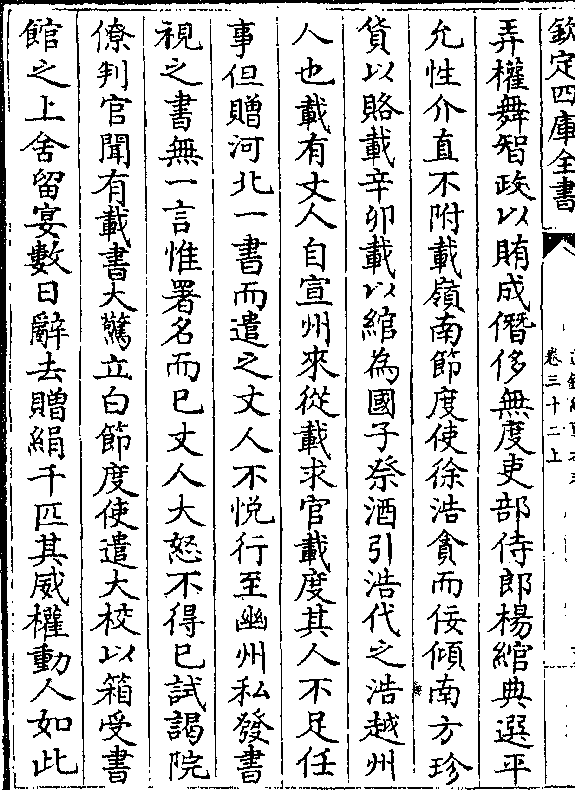 欽定四庫全書
卷三十二上
弄權舞智政以賄成僭侈無度吏部侍郎楊綰典選平
允性介直不附載嶺南節度使徐浩貪而佞傾南方珍
貨以賂載辛卯載以綰為國子祭酒引浩代之浩越州
人也載有丈人自宣州來從載求官載度其人不足任
事但贈河北一書而遣之丈人不悅行至幽州私發書
視之書無一言惟署名而已丈人大怒不得已試謁院
僚判官聞有載書大驚立白節度使遣大校以箱受書
館之上舍留宴數日辭去贈絹千匹其威權動人如此